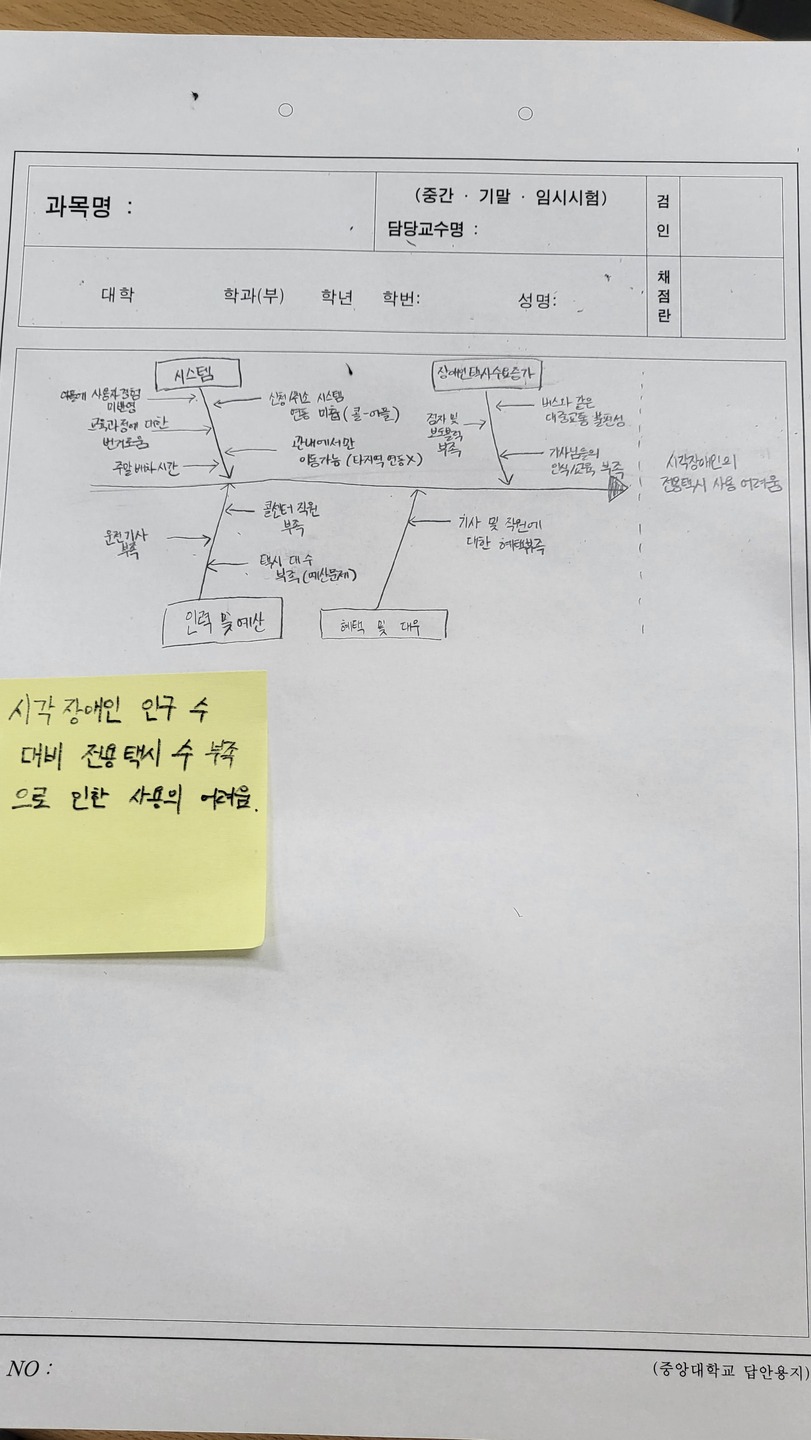 과목명 :
(중간 · 기말 · 임시시험)
담당교수명 :
검
인
대학 학과(부) 학년 학번: 성명:
채
점
란
시스템
사용자경험
미반영
교육과정에 대한
번거로움
주말 배차시간
신청/취소 시스템
연동 미흡 (콜-어플)
관내에서만
이동가능 (타지역 연동X)
장애인택시수요증가
점자 및
보도블럭
부족
버스와 같은
대중교통 불편성
기사님들의
인식/교육 부족
시각장애인의
전용택시 사용 어려움
운전기사
부족
콜센터 직원
부족
택시 대수
부족 (예산문제)
인력 및 예산
기사 및 직원에
대한 혜택부족
혜택 및 대우
시각장애인 인구 수
대비 전용택시 수 부족
으로 인한 사용의 어려움.
NO :
(중앙대학교 답안용지)